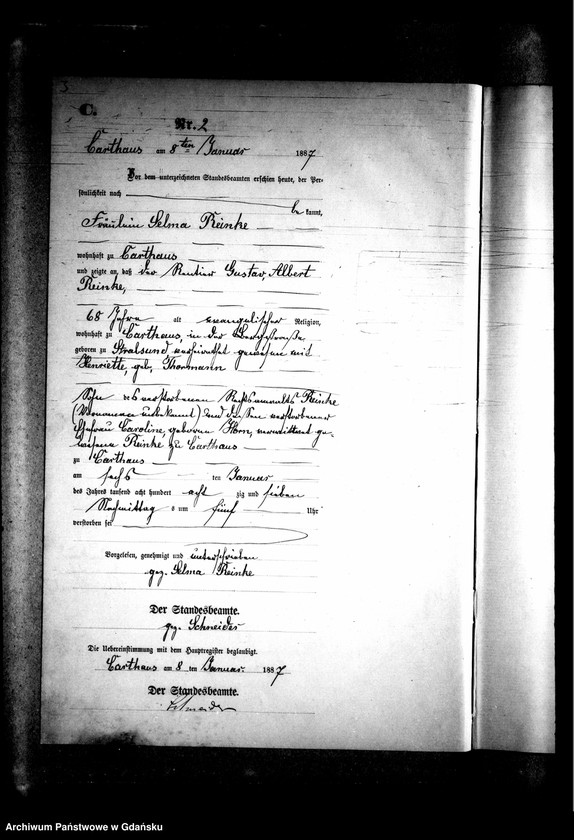 C.
Nr. 2
Carthaus am 8ten Januar 1887
Vor dem unterzeichneten Standesbeamten erschien heute, der Per-
sönlichkeit nach
be kannt,
Fräulein Selma Reinke
wohnhaft zu Carthaus
und zeigte an, daß der Rentier Gustav, Albert
Reinke,
68 Jahre alt evangelischer Religion,
wohnhaft zu Carthaus, in der
geboren zu Stralsund verheirathet gewesen mit
Henriette, geb. Thormann
Sohn des verstorbenen Rechtsanwalts Reinke
(Vornamen unbekannt) und dessen verstorbener
Ehefrau Caroline, geborene Horn, verwittwet ge-
wesene Reinke zu Carthaus
zu Carthaus
am sechs ten Januar
des Jahres tausend acht hundert acht zig und sieben
Nachmittag s um fünf Uhr
verstorben sei
Vorgelesen, genehmigt und unterschrieben
gez. Selma Reinke
Der Standesbeamte.
gez. Schneider
Die Uebereinstimmung mit dem Hauptregister beglaubigt.
Carthaus am 8 ten Januar. 1887
Der Standesbeamte.
Schneider
Archiwum Państwowe w Gdańsku